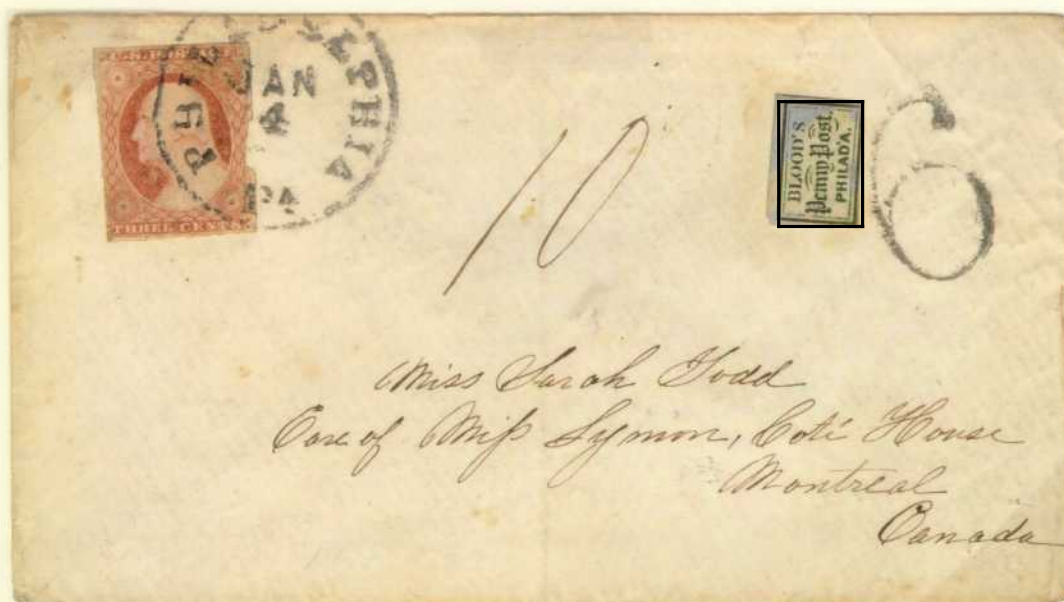 U.S. POSTAGE
THREE CENTS
PHILADELPHIA
JAN
4
PA
10
BLOOD'S
Penny Post,
PHILAD'A.
6
Miss Sarah Todd
Care of Miss Lymon, Coté House
Montreal
Canada